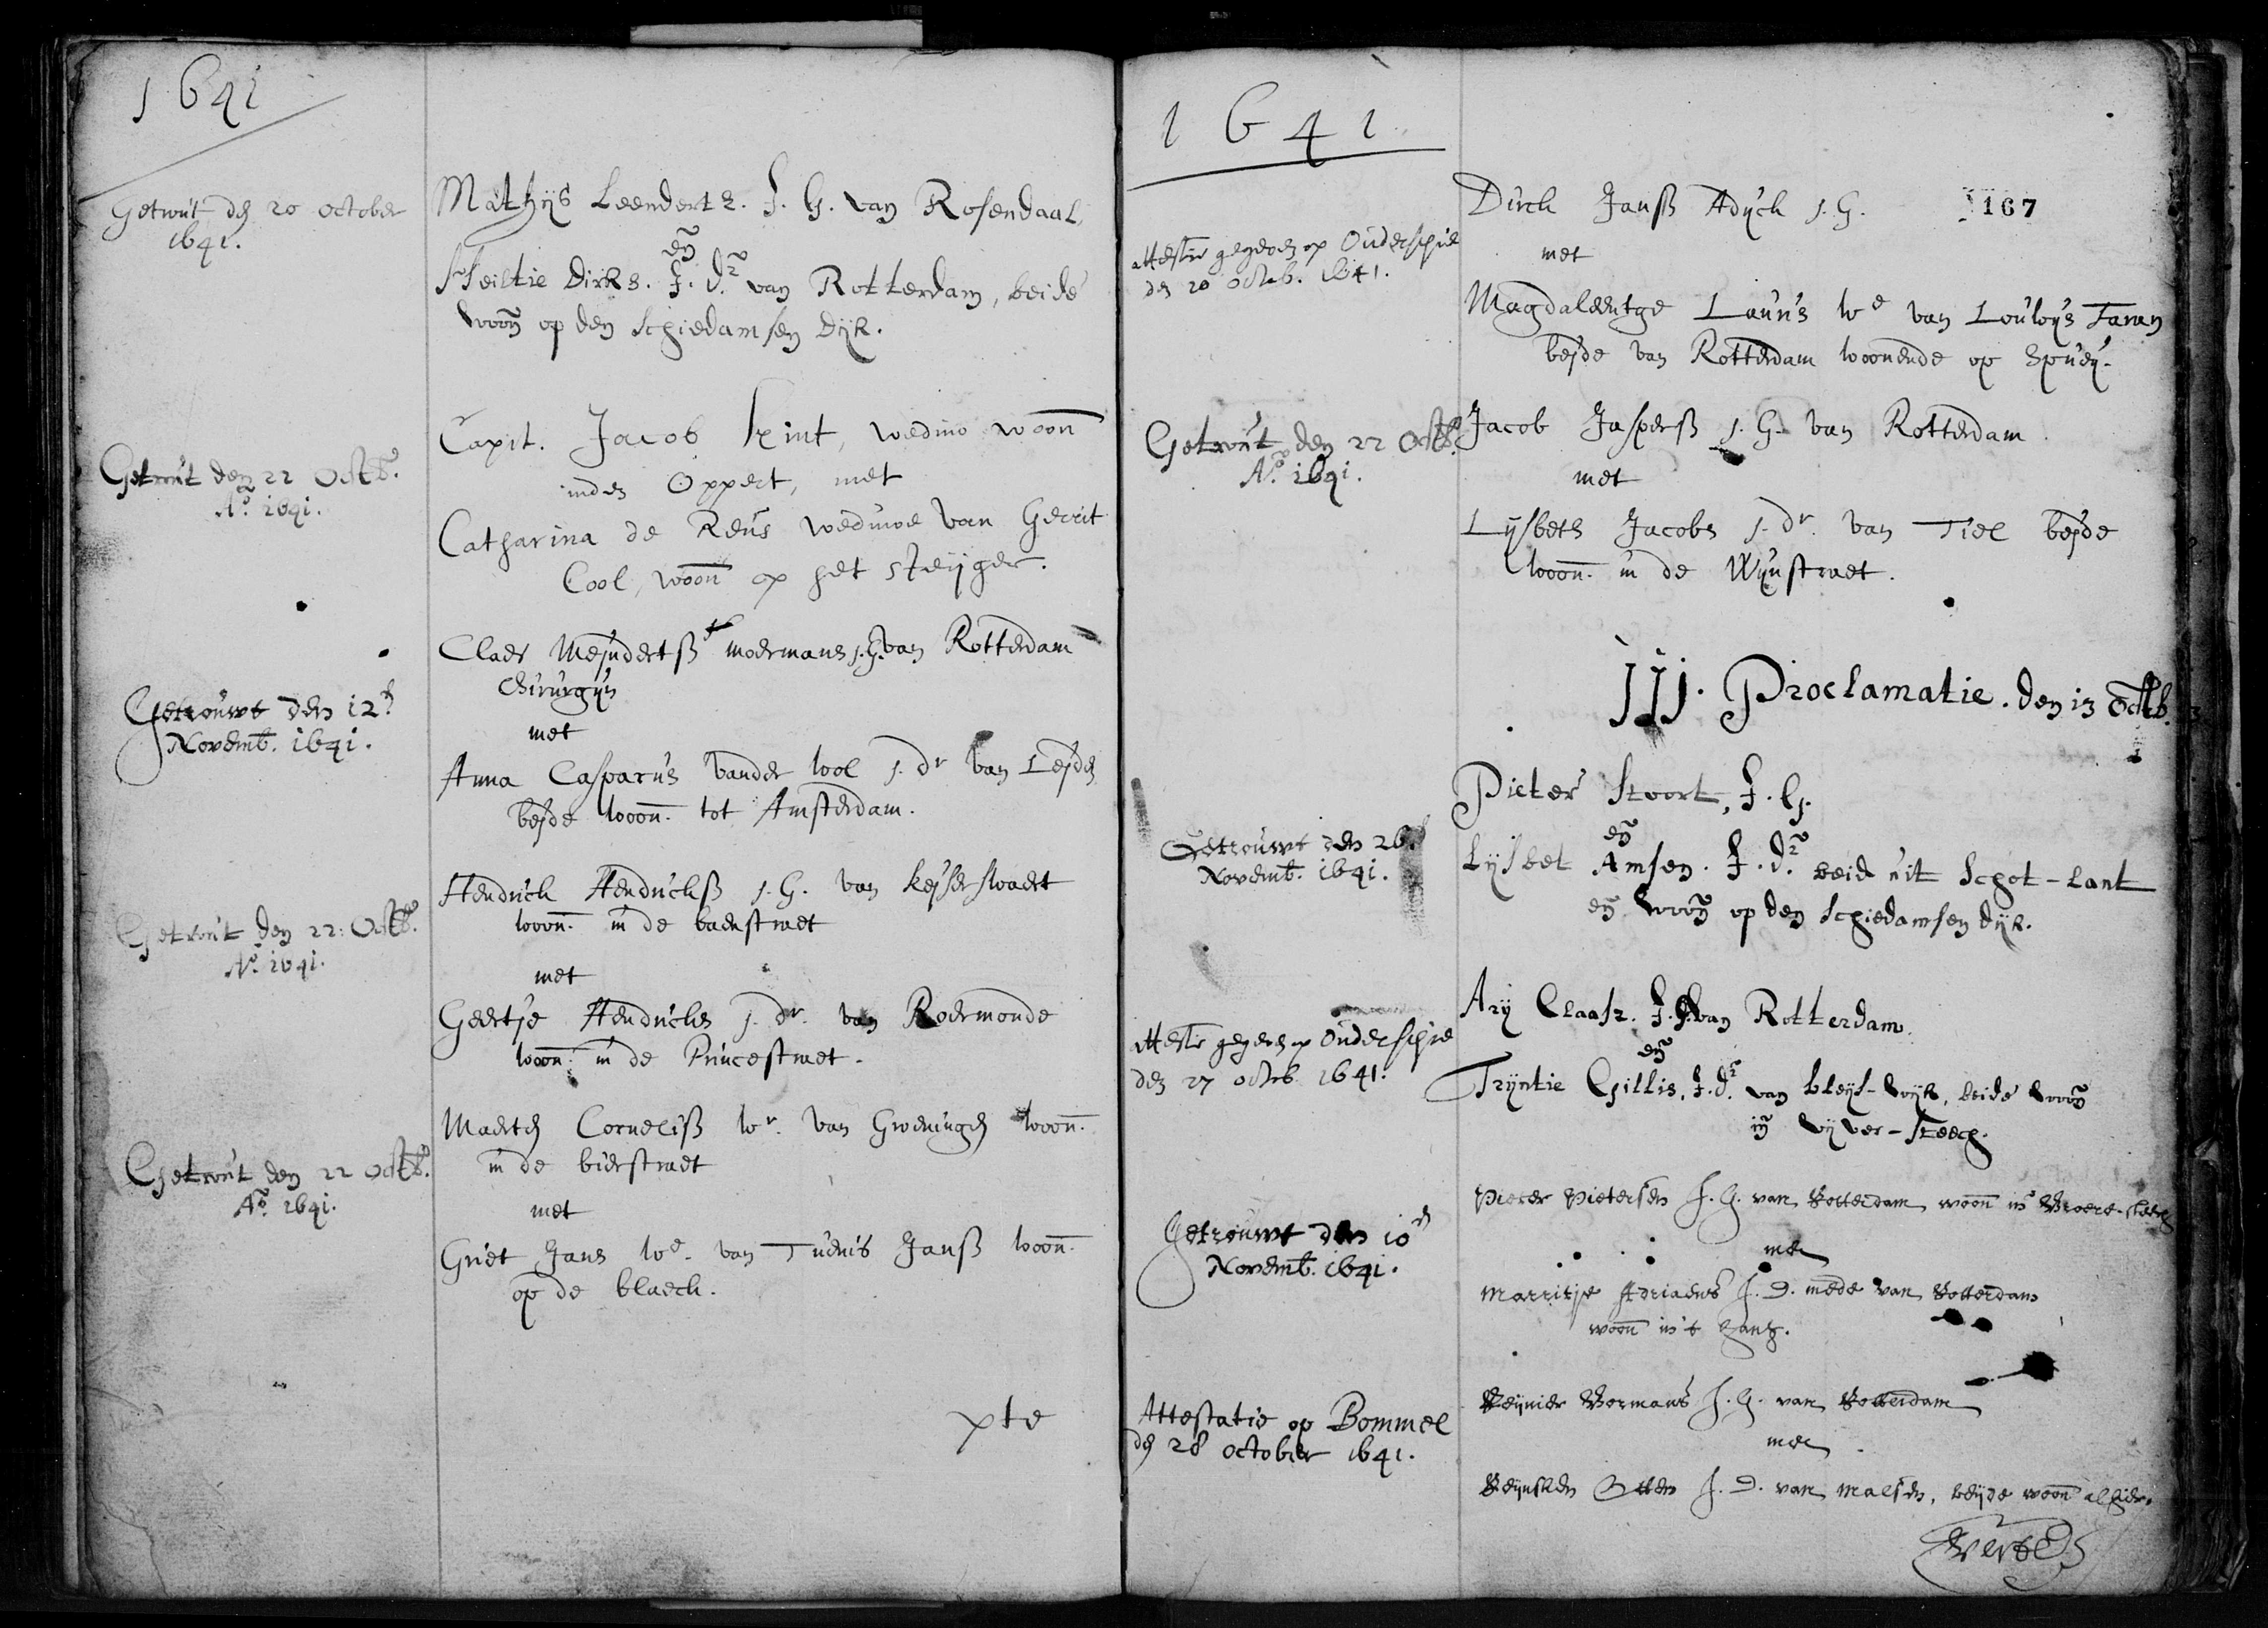 1641
Getrout den 20 october
1641.
Mathijs Leendertz. J. G. van Rosendaal,
en
Neiltie Dirks. J. dr. van Rotterdam, beide
woon op den Schiedamsen Dijk.
Getrout den 22 Octb.
Ao. 1641.
Capit. Jacob Kint, weduwr woon
inden Oppert, met
Catharina de Reus weduwe van Gerrit
Cool, woon op het steijger.
Getrouwt den 12
Novemb. 1641.
Claes Meijndertß moermans j.G. van Rotterdam
Chirurgijn
met
Anna Casparus vander wol j. dr van Leijden
beijde woon. tot Amsterdam.
Getrout den 22. Octb.
Ao. 1641.
Hendrick Hendrickß j. G. van keijserswaert
woon. in de baenstraet
met
Geertje Hendricks j. dr. van Roermonde
woon. in de Princestraet.
Getrout den 22 Octb.
Ao. 1641.
Maerten Corneliß wr. van Groeningen woon.
in de bierstraet
met
Griet Jans we. van Tuenis Janß woon.
op de blaeck.
pte
1641.
167
attestie gegeven op Ouderschie
den 20 octob. 1641.
Dirck Janß Adijck j. G.
met
Magdaleentge Lauris we van Louwys
beijde van Rotterdam woonende op Spueij.
Getrout den 22 Octb.
Ao. 1641.
Jacob Jasperß j. G. van Rotterdam
met
Lysbeth Jacobs j. dr. van Tiel beijde
woon. in de Wijnstraet.
IIJ. Proclamatie. den 13 Octb.
Getrouwt den 26
Novemb. 1641.
Pieter Stoort, J. G.
en
Lijsbet Amsen. J. dr. beid uit Schot-lant
en woon op den Schiedamsen dijk.
attestie gegeven op Ouderschie
den 27 octob 1641.
Arij Claasz. J. G. van Rotterdam.
en
Trijntie Gillis, J. dr. van bleijs-wijk, beide woon
in vijver-steech.
Getrouwt den 10
Novemb. 1641.
Pieter Pietersen J. G. van Rotterdam woon in Broere-steech
met
Marritje Adriaens J. D. mede van Rotterdam
woon in't
Attestatie op Bommel
den 28 october 1641.
Reijnier Vermans J. G. van Rotterdam
met
Reijnsken Otten J. D. van Malsen, beijde woon alhier.